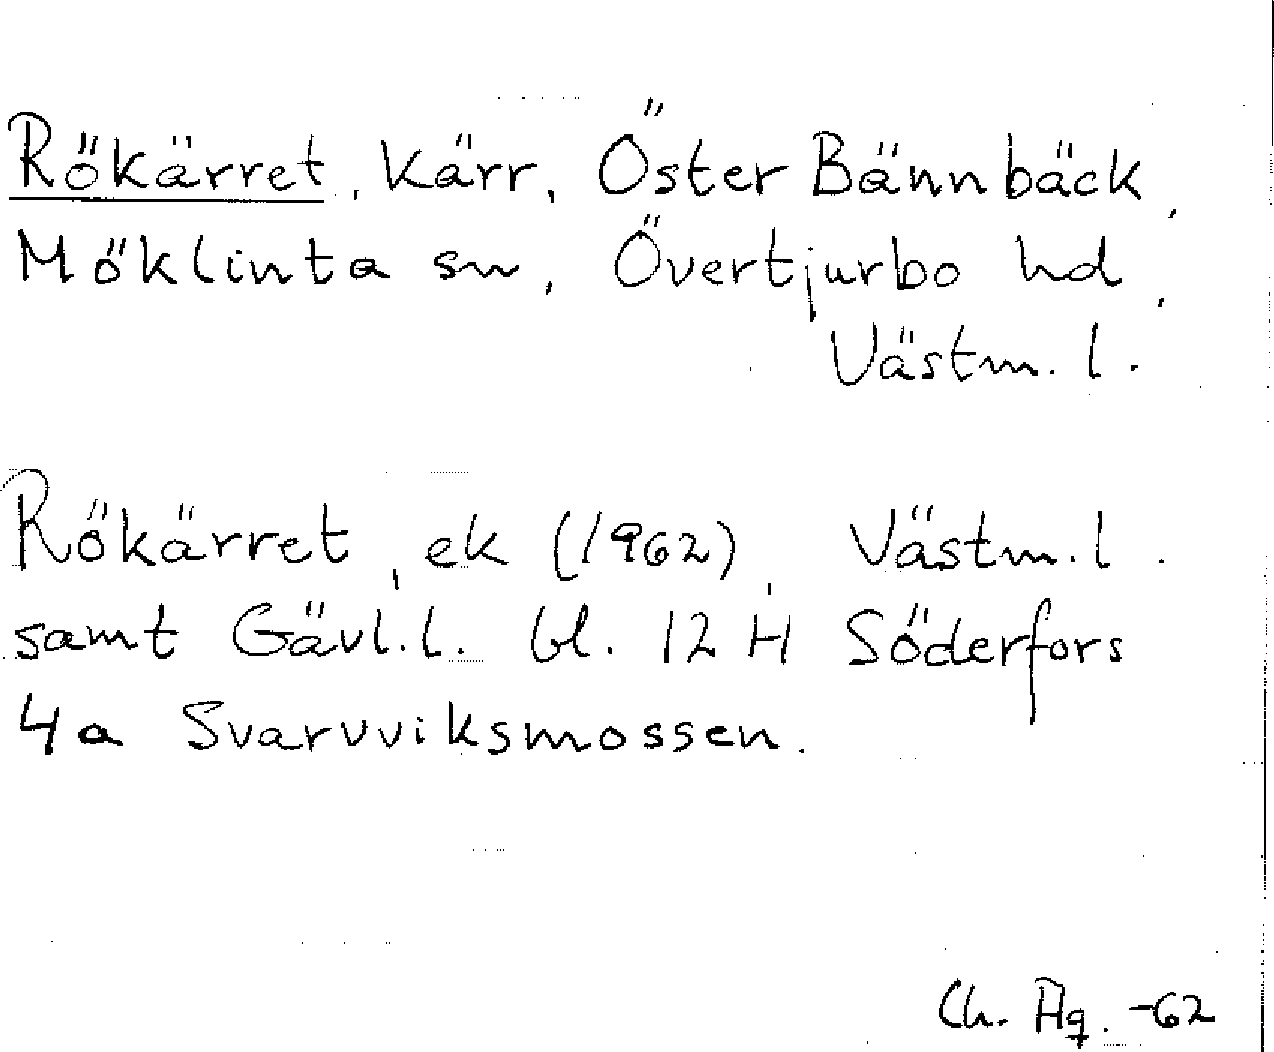 Rökärret, Kärr, Öster Bännbäck,
Möklinta sn, Övertjurbo hd,
Västm. l.
Rökärret, ek (1962), Västm. l.
samt Gävl. l. bl. 12 H Söderfors
4a Svarvviksmossen.
Ch. Hg. -62